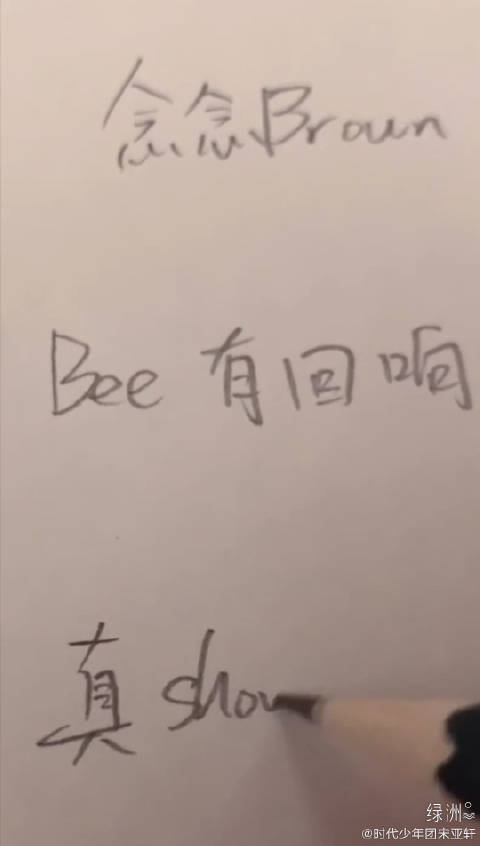 念念Broun
Bee 有回响
真 show
绿洲
@时代少年团宋亚轩